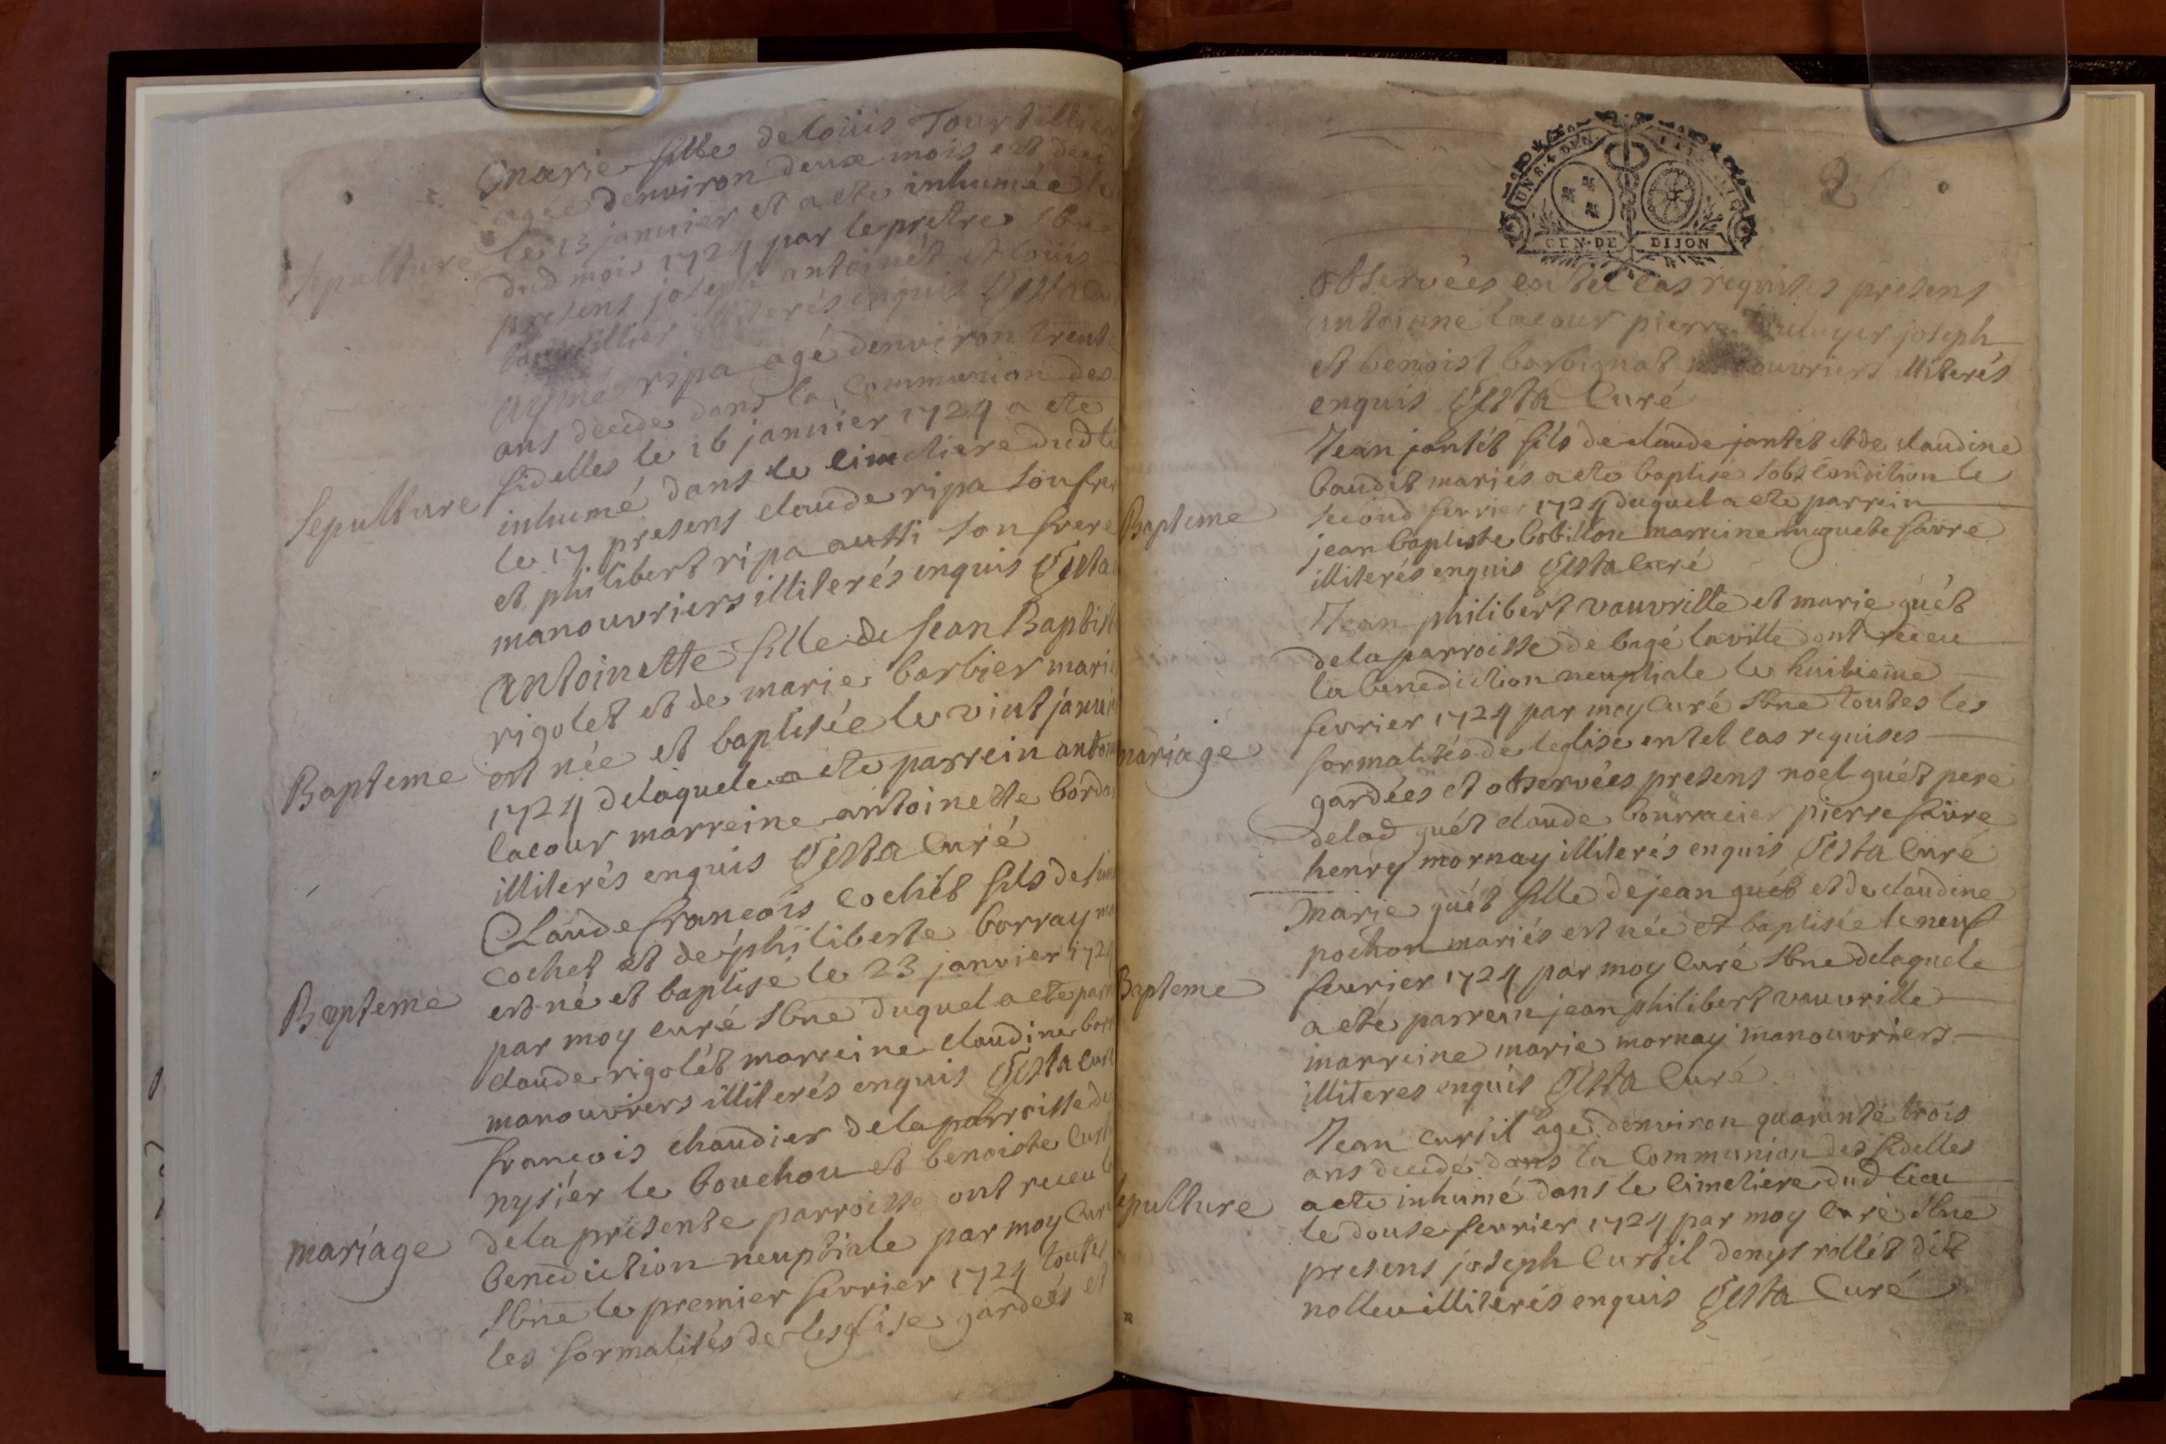 marie fille de loüis Tourtillier
agée denviron deux mois est deced
Sepulture
le 13 janvier et a ete inhumée le
dud mois 1724 par le pretre sbne
presens joseph antoinet et loüis
tourtillier illiterés enquis Gesta cu
Aymé ripa agé denviron trente
ans decede dans la Communion des
fidelles le 16 janvier 1724 a ete
Sepulture
inhumé dans le cimetiere dud li
le 17 presens claude ripa son frer
et philibert ripa aussi son frere
manouvriers illiterés enquis Gesta
Antoinette fille de Jean Baptist
rigolet et de marie barbier marié
Bapteme
est née et baptisée le vint janvie
1724 delaquele a ete parrein antoin
lacour marreine antoinette borda
illiterés enquis Gesta Curé
Claude françois cochet fils de
cochet et de philiberte borray
Bapteme
est né et baptise le 23 janvier 1724
par moy curé sbne duquel a ete parr
claude rigolét marreine claudine
manouvriers illiterés enquis Gesta Curé
françois chaudier dela parroisse de
nysiér le bouchou et benoiste Curti
mariage
dela presente parroisse ont receu l
benediction neuptiale par moy Curé
sbne le premier fevrier 1724 toutes
les formalités de leglise gardeés et
GEN·DE DIJON
2
observées en tel cas requises presens
antoinne lacour pierre joseph
et benoist barbignat manouvriers illiterés
enquis Gesta Curé
Jean jantét fils de claude jantet et de claudine
baudét mariés a ete baptise sobs condition le
second fevrier 1724 duquel a ete parrein
Bapteme
jean baptiste bobillon marreine huguete favre
illiterés enquis Gesta Curé
Jean philibert vauvrille et marie guét
dela parroisse de bagé laville ont receu
la benediction neuptiale le huitieme
fevrier 1724 par moy Curé sbne toutes les
mariage
formalités de leglise en tel cas requises
gardées et observées presens noel guét pere
delad guét claude pierre favre
henry mornay illiterés enquis Gesta Curé
Marie guét fille de jean guét et de claudine
pochon mariés est née et baptisée le neuf
Bapteme
fevrier 1724 par moy Curé sbne delaquele
a eté parrein jean philibert vauvrille
marreine marie mornay manouvriers
illiteres enquis Gesta Curé
Jean Curtil agé denviron quarante trois
ans decedé dans la Communion des fidelles
Sepulture
a ete inhumé dans le Cimetiere dud lieu
le douse fevrier 1724 par moy Curé sbne
presens joseph Curtil denys rollét dit
nolleu illiterés enquis Gesta Curé